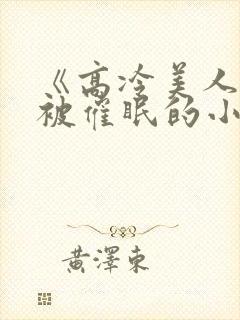 《高冷美人
被催眠的小
黄澤東